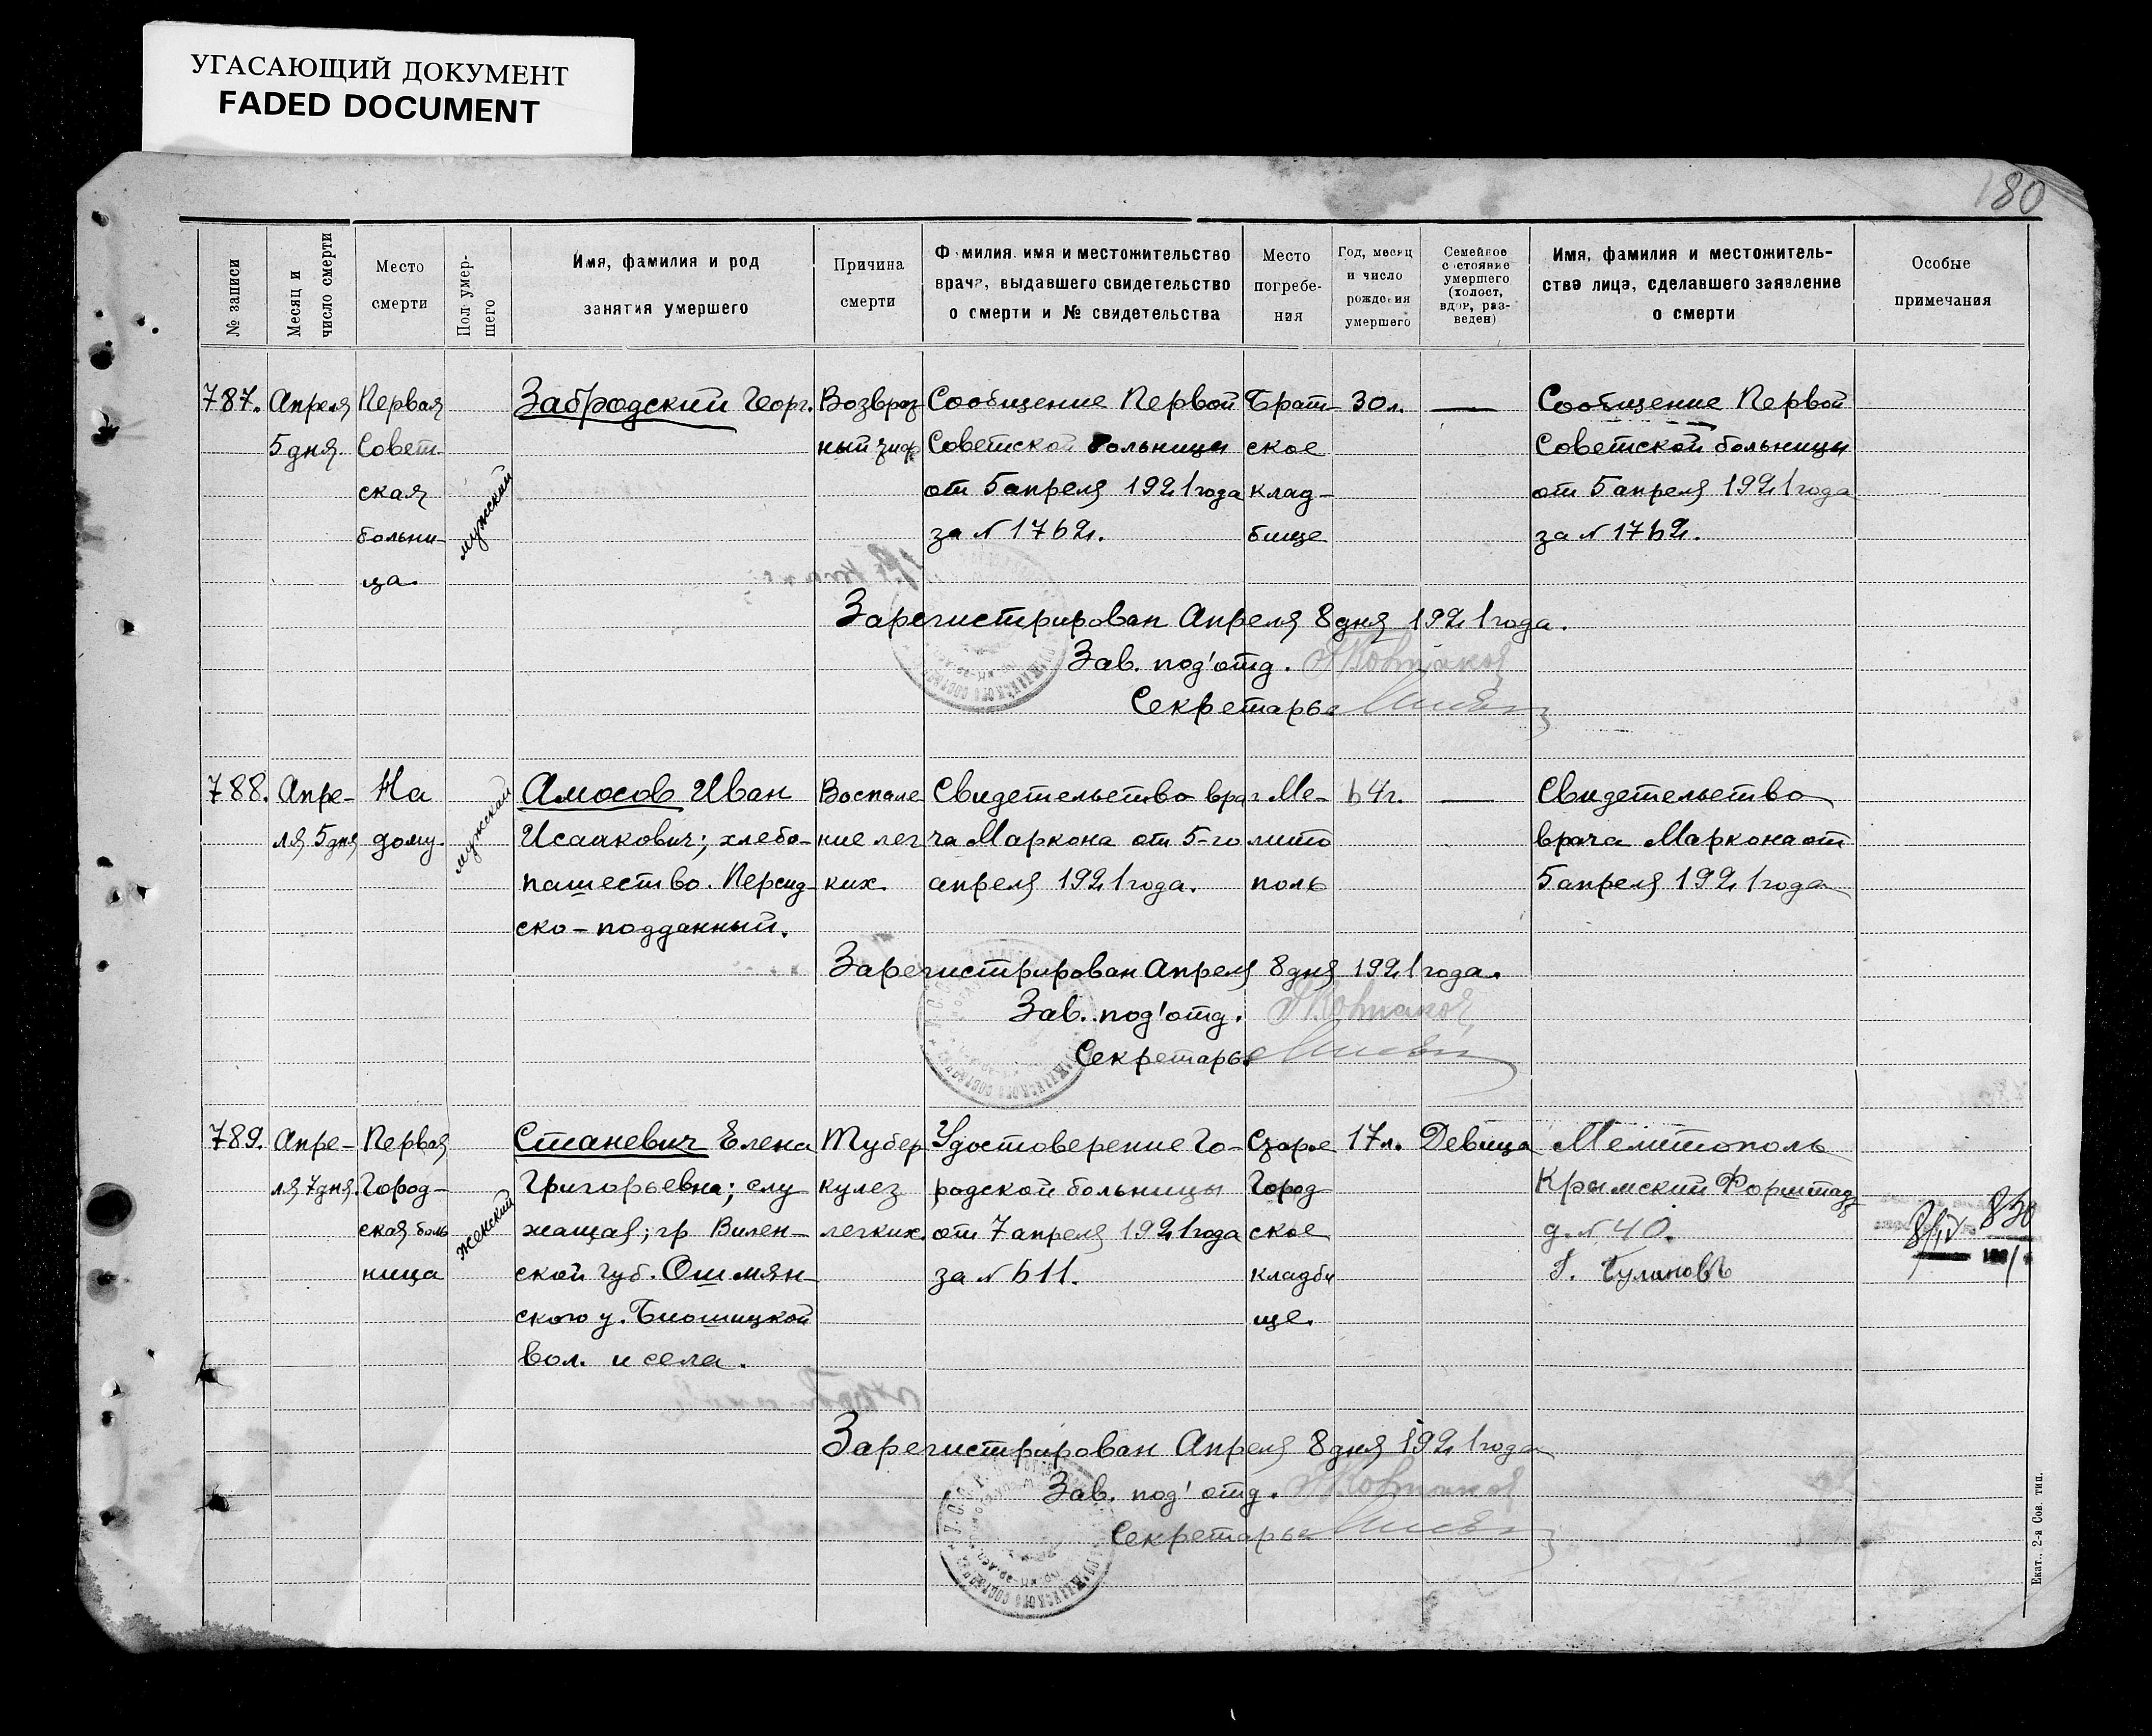 УГАСАЮЩИЙ ДОКУМЕНТ
FADED DOCUMENT
180
№ записи
Месяц и
число смерти
Место
смерти
Пол умер-
шего
Имя, фамилия и род
занятия умершего
Причина
смерти
Фамилия имя и местожительство
врача, выдавшего свидетельство
о смерти и № свидетельства
Место
погребе-
ния
Год, месяц
и число
рождения
умершего
Семейное
состояние
умершего
(холост,
вдов, раз-
веден)
Имя, фамилия и местожитель-
ство лица, сделавшего заявление
о смерти
Особые
примечания
787.
Апреля
5 дня
Первая
Совет-
ская
больни-
ца.
мужской
Забродский Георг.
Возврат
ный тиф
Сообщение Первой
Советской больницы
от 5 апреля 1921 года
за № 1762.
Брат-
ское
клад-
бище
30 л.
—
Сообщение Первой
Советской больницы
от 5 апреля 1921 года
за № 1762.
Зарегистрирован Апреля 8 дня 1921 года.
Зав. под'отд.
Секретарь
788.
Апре-
ля 5 дня
На
дому.
мужской
Амосов Иван
Исаакович; хлебо-
пашество. Персид-
ско-подданный.
Воспале
ние лег
ких
Свидетельство вра-
ча Маркона от 5-го
апреля 1921 года.
г Ме-
лито
поль
64 г.
—
Свидетельство
врача Маркона от
5 апреля 1921 года
Зарегистрирован Апреля 8 дня 1921 года.
Зав. под'отд.
Секретарь
789.
Апре-
ля 7 дня.
Первая
Город-
ская боль
ница
женский
Станевич Елена
Григорьевна; слу
жащая; гр Вилен-
ской губ. Ошмян-
ского у. Биошицкой
вол. и села.
Тубер
кулез
легких.
Удостоверение Го-
родской больницы
от 7 апреля 1921 года
за № 611.
Старое
Город
ское
кладби
ще.
17 л.
Девица
Мелитополь
Крымский Форштад
д. № 40.
Г. Булановъ
8/IV 830
Зарегистрирован Апреля 8 дня 1921 года
Зав. под' отд.
Секретарь
Екат., 2-я Сов. тип.